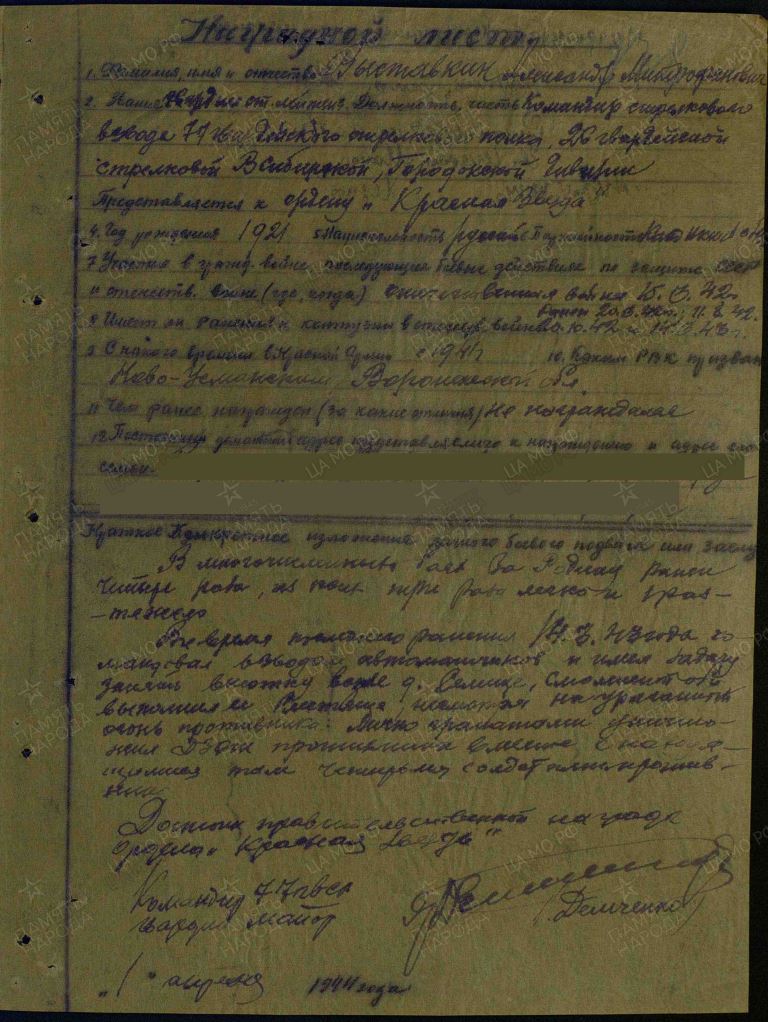 Наградной лист
1. Фамилия, имя и отчество Выставкин Александр Митрофанович
2. Звание Гвардии лейтен. Должность, часть Командир стрелкового
взвода 77 гвардейского стрелкового полка, 26 гвардейской
стрелковой В.Сибирской, Городокской дивизии
Представляется к ордену „Красная Звезда"
4. Год рождения 1921 5 Национальность русский 6 Партийность
7 Участие в гражд. войне, последующие боевые действиях по защите СССР
и отечеств. войне (где, когда) отечественная война 15.3.42г.
8 Имеет ли ранения и контузии в отечеств. войне
9 С какого времени в Красной Армии с 1941г 10. Каким РВК призван
Ново-Усманским, Воронежской обл
11 Чем ранее награжден (за какие отличия) не награждался
12 Постоянный домашний адрес представляемого к награждению и адрес его
семьи
Краткое конкретное изложение личного боевого подвига или заслуг
В многочисленных боях за Родину ранен
четыре раза, из коих три раза легко и 1 раз
-тяжело
Во время ранения 14.3.43 года ко-
мандовал взводом автоматчиков и имел задачу
занять высотку возле д. Селище, Смоленской обл
выполняя ее несмотря на ураганный
огонь противника. Лично гранатами уничто-
жил ДЗОТ противника вместе с находя-
щимися там четырьмя солдатами против-
ника
Достоин правительственной награде
Ордена „Красная Звезда"
Командир 77 гвсп
гвардии майор
/Демченко/
„1" апреля 1944 года
ПАМЯТЬ НАРОДА
ЦАМО РФ